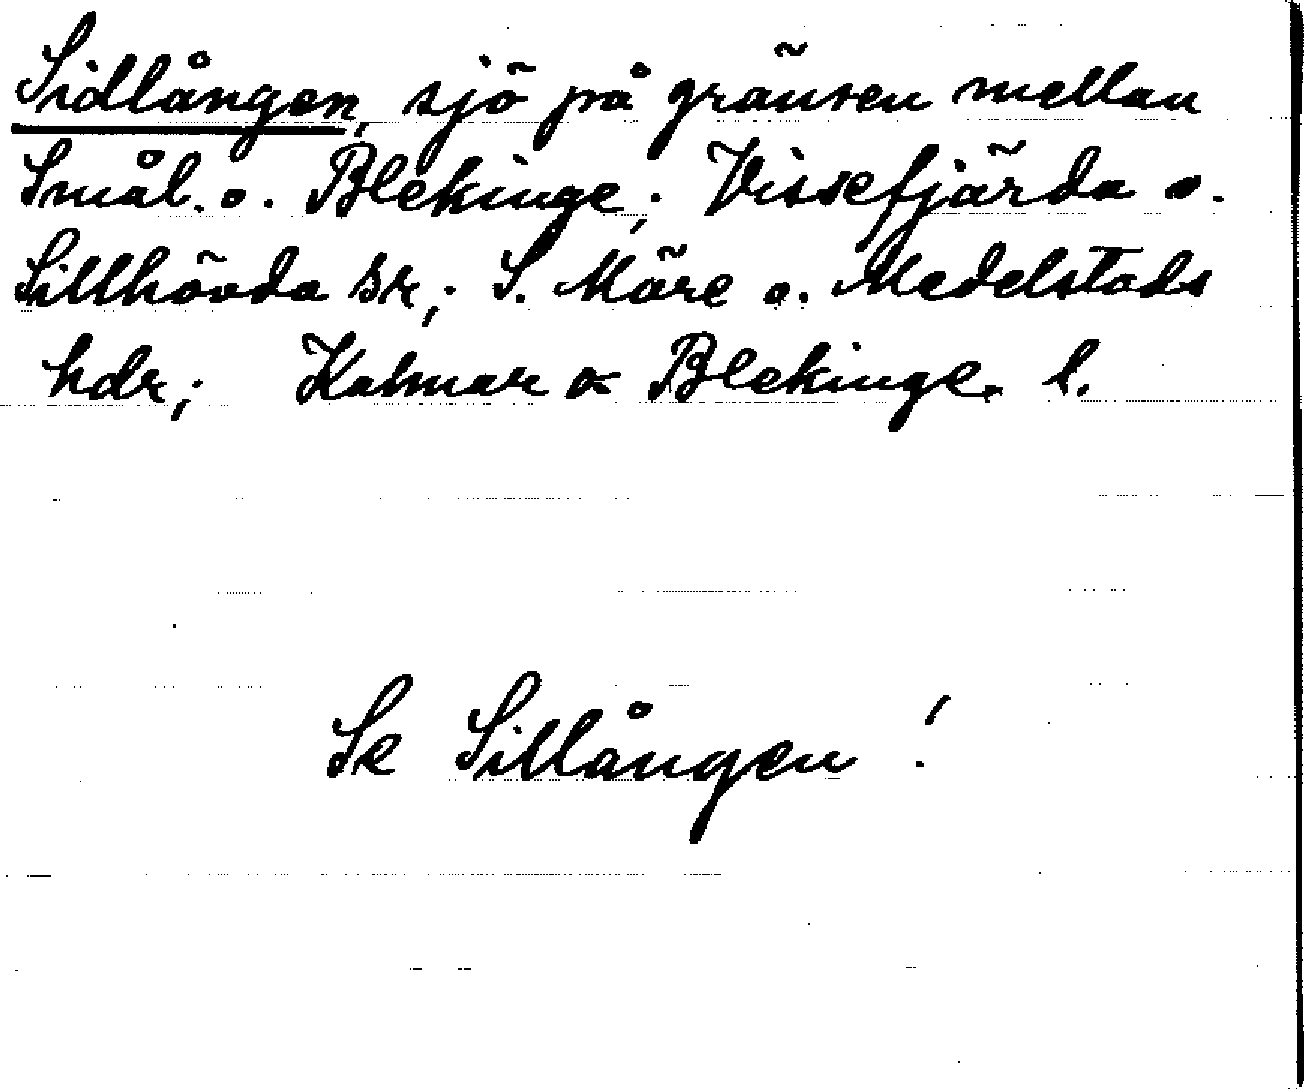 Sidlången, sjö på gränsen mellan
Smål. o. Blekinge; Vissefjärda o.
Sillhövda sk; S. Möre o. Medelstads
hdr; Kalmar o Blekinge. l.
Se Sillången!